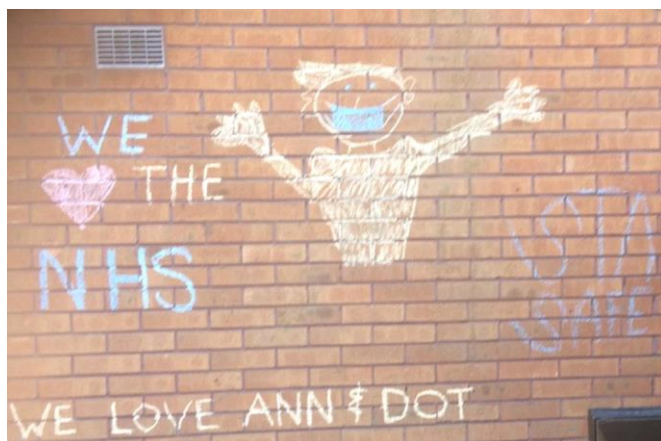 WE
❤ THE
NHS
STA
SAFE
WE LOVE ANN & DOT